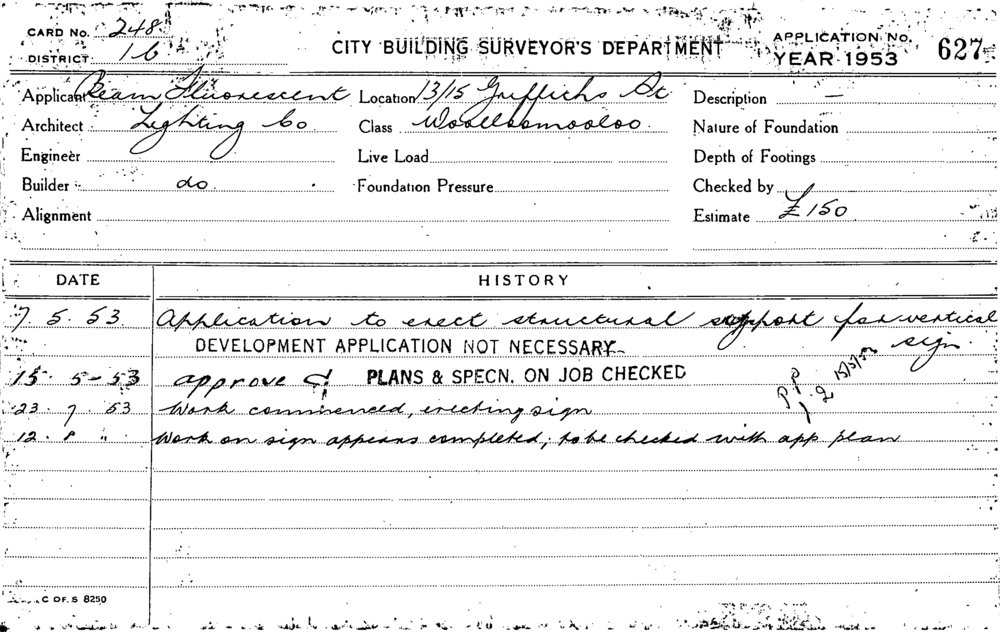 CARD No. 248
DISTRICT 16
CITY BUILDING SURVEYOR'S DEPARTMENT
APPLICATION No. 627
YEAR 1953
Applicant Beam Fluorescent Location 13/15 Griffiths St Description —
Architect Lighting Co Class Woolloomooloo Nature of Foundation
Engineer Live Load Depth of Footings
Builder do. Foundation Pressure Checked by
Alignment Estimate £150
DATE HISTORY
7 5. 53 Application to erect structural support for vertical
sign.
DEVELOPMENT APPLICATION NOT NECESSARY
15. 5-53 approve PLANS & SPECN. ON JOB CHECKED
P.P.
23. 7. 53 Work commenced, erecting sign
12. 8 " Work on sign appears completed; to be checked with app plan
C OF. S 8250